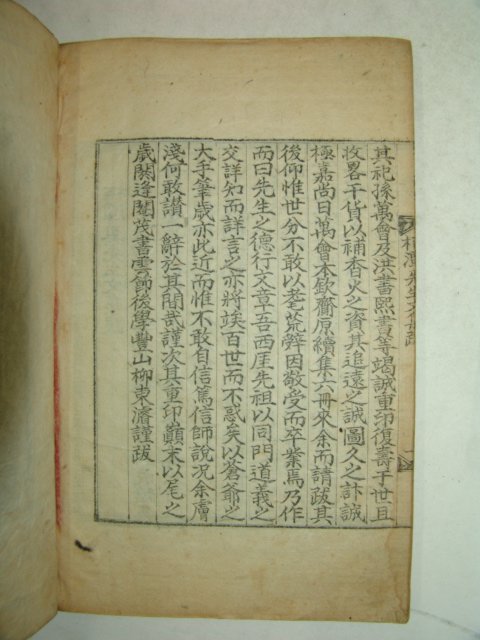 其祀孫萬會及洪書熙書等竭誠重印復壽于世且
收畧干貨以補香火之資其追遠之誠圖久之計誠
極嘉尚日萬會本欽齋原續集六冊來余而請跋其
後仰惟世分不敢以耄荒辭因敬受而卒業焉乃作
而曰先生之德行文章吾西厓先祖以同門道義之
交詳知而詳言之亦將竢百世而不惑矣以蒼爺之
大手筆歲亦此近而惟不敢自信篤信師說况余膚
淺何敢讃一辭於其間哉謹次其重印顚末以尾之
歲閼逢閹茂書雲節後學豐山柳東濬謹跋